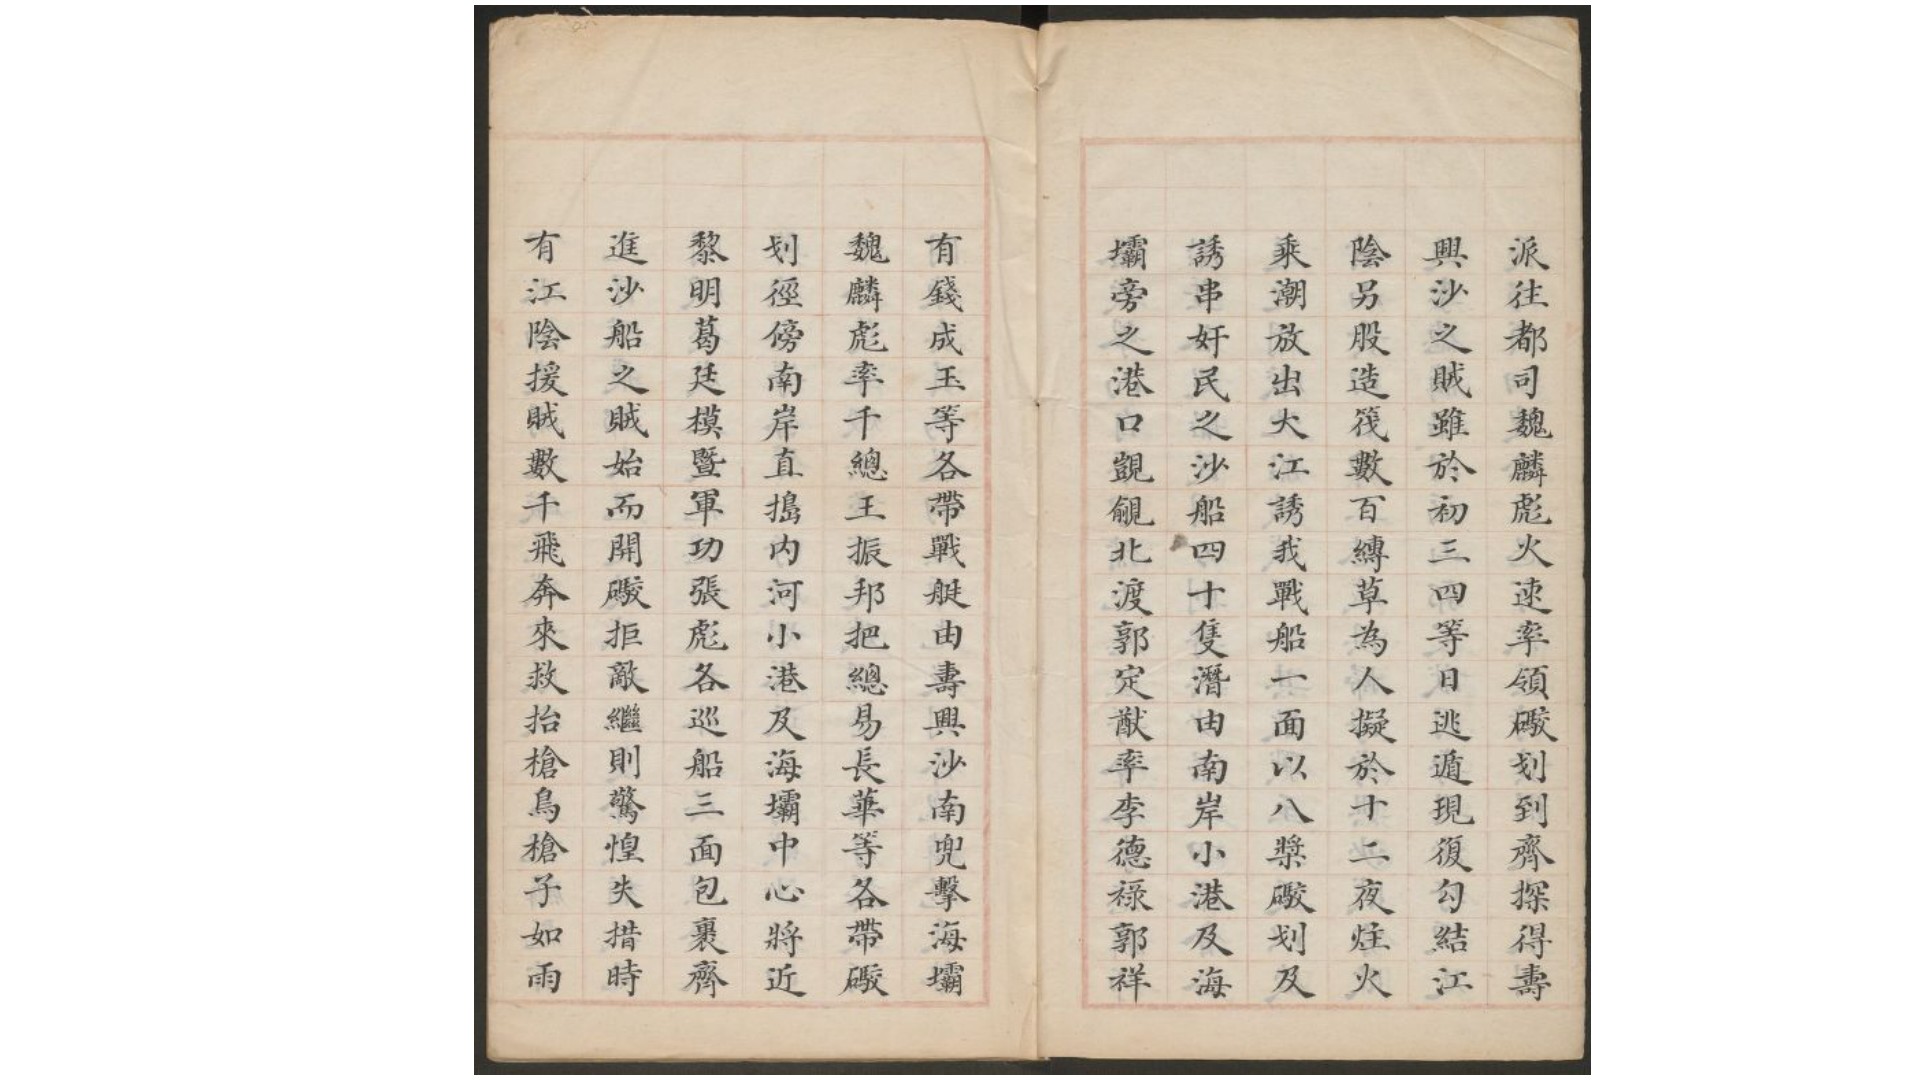 派往都司魏麟彪火速率領礮划到齊探得壽
興沙之賊雖於初三四等日逃遁現復勾結江
陰另股造筏數百縛草為人擬於十二夜炷火
乘潮放出大江誘我戰船一面以八槳礮划及
誘串奸民之沙船四十隻潛由南岸小港及海
壩旁之港口覬覦北渡郭定猷率李德祿郭祥
有錢成玉等各帶戰艇由壽興沙南兜擊海壩
魏麟彪率千總王振邦把總易長華等各帶礮
划徑傍南岸直搗内河小港及海壩中心將近
黎明葛廷模暨軍功張彪各巡船三面包裹齊
進沙船之賊始而開礮拒敵繼則驚惶失措時
有江陰援賊數千飛奔來救抬槍鳥槍子如雨